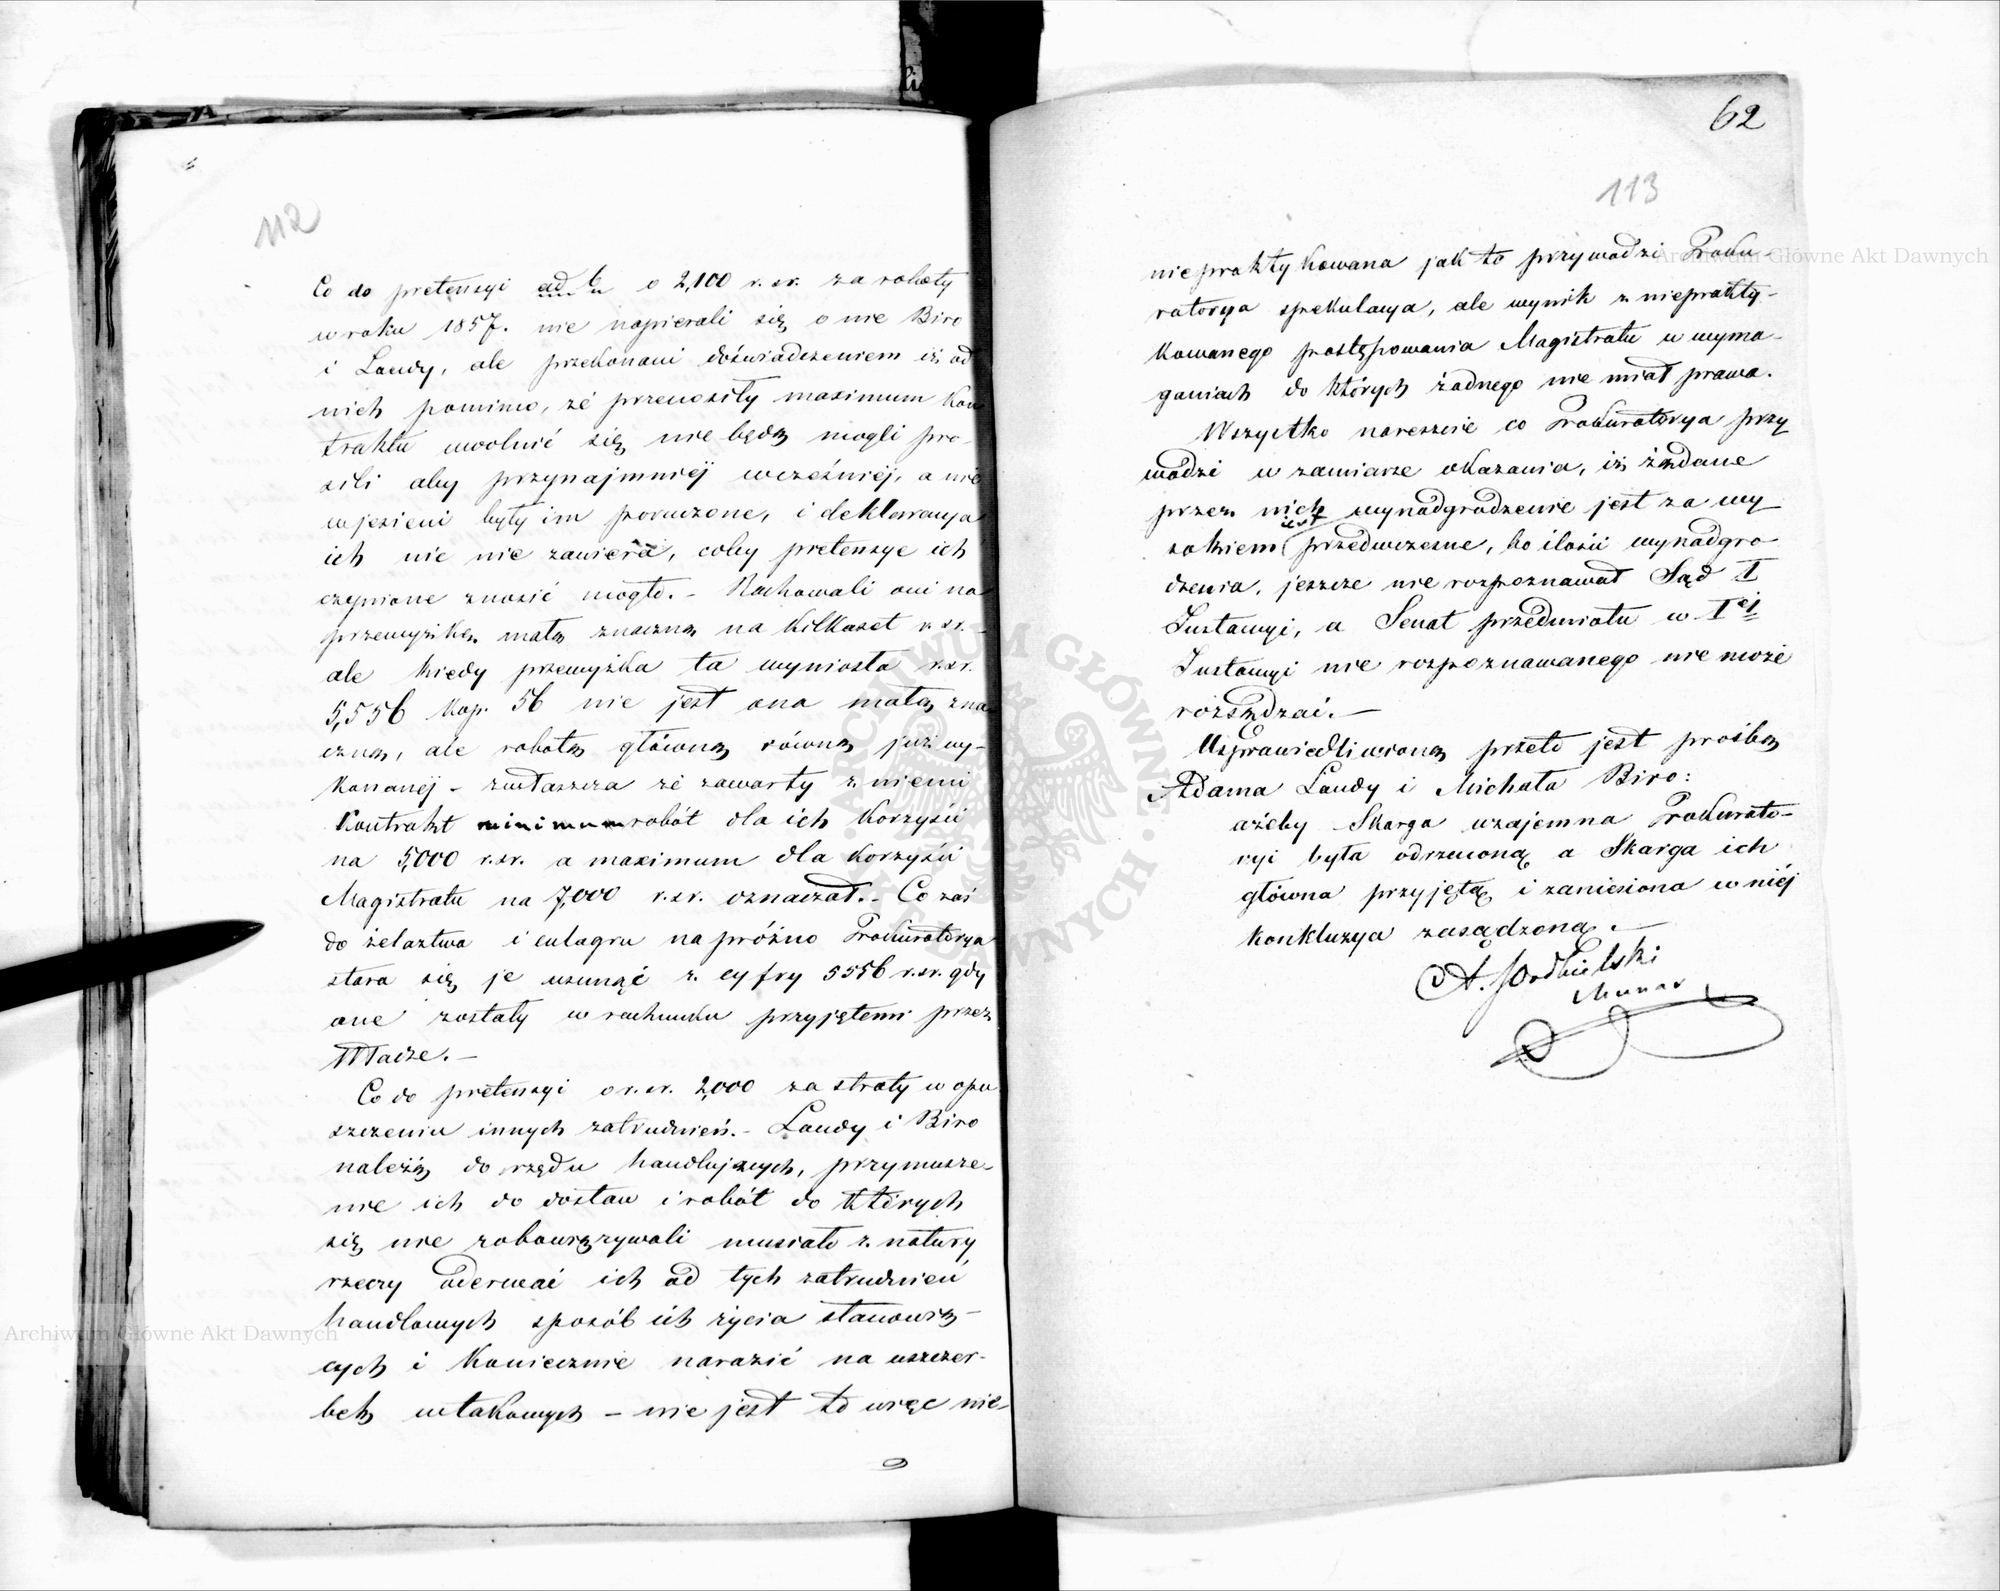 112
Co do pretensyi ad b o 2,100 r. sr. za roboty
w roku 1857. nie napierali się o nie Biro
i Landy, ale przekonani doświadczeniem iż od
nich pomimo, że przenosiły maximum Kon
traktu uwolnić się nie będą mogli pro-
sili aby przynajmniéj wcześniéj, a nie
w jesieni były im poruczone, i deklaracya
ich nic nie zawiera, coby pretensye ich
czynione znosić mogło. - Rachowali oni na
przewyżkę małą znaczną na kilkaset r. sr. -
ale kiedy przewyżka ta wyniosła r. sr.
5,556 kop. 56 nie jest ona małą zna
czną, ale robotą główną równą już wy-
konanéj - zwłaszcza że zawarty z niemi
Kontrakt minimum robót dla ich Korzyści
na 5,000 r. sr. a maximum dla Korzyści
Magistratu na 7,000 r. sr. oznaczał. - Co zaś
do żelaztwa i na próżno Prokuratorya
stara się je usunąć z cyfry 5556 r. sr. gdy
one zostały w rachunku przyjętemi przez
Władze. -
Co do pretensyi o r. sr. 2,000 za straty w opu
szczeniu innych zatrudnień. - Landy i Biro
należą do rzędu handlujących, przymusze-
nie ich do dostaw i robót do których
się nie zobowiązywali musiało z natury
rzeczy oderwać ich od tych zatrudnień
handlowych sposób ich życia stanowią-
cych i Koniecznie narazić na uszczer-
bek w takowych - nie jest to więc nie-
62
113
niepraktykowana jak to przywodzi Proku-
ratorya spekulacya, ale wynik z nieprakty-
kowanego postępowania Magistratu w wyma-
ganiach do których żadnego nie miał prawa.
Wszystko nareszcie co Prokuratorya przy
wodzi w zamiarze okazania, iż żądane
przez nich wynadgrodzenie jest za wy
jest
sokiem przedwczesne, bo ilości wynadgro
dzenia, jeszcze nie rozpoznawał Sąd I
Instancyi, a Senat przedmiotu w Iéj
Instancyi nie rozpoznawanego nie może
rozsądzać. -
Usprawiedliwioną przeto jest prośba
Adama Landy i Michała Biro:
ażeby Skarga wzajemna Prokurato-
ryi była odrzuconą a Skarga ich
główna przyjętą i zaniesiona w niéj
Konkluzya zasądzoną. -
Archiwum Główne Akt Dawnych
Archiwum Główne Akt Dawnych
ARCHIWUM GŁÓWNE AKT DAWNYCH